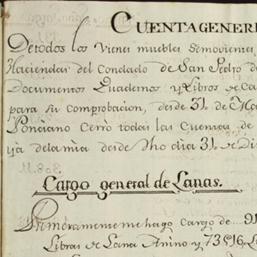 CUENTAGENER
De todos los Vienes muebles Semovientes
Haciendas del Condado de San Pedro d
Documentos Quadernos y Libros de Ca
para su Comprobacion, desde 31 de
Ponciano Cerrò todas las Cuentas de
ija delamia desde dho dia 31 de Di
Cargo general de Lanas.
Primeramente me hago Cargo de 91
Libras de Lana Anino y 7396 L